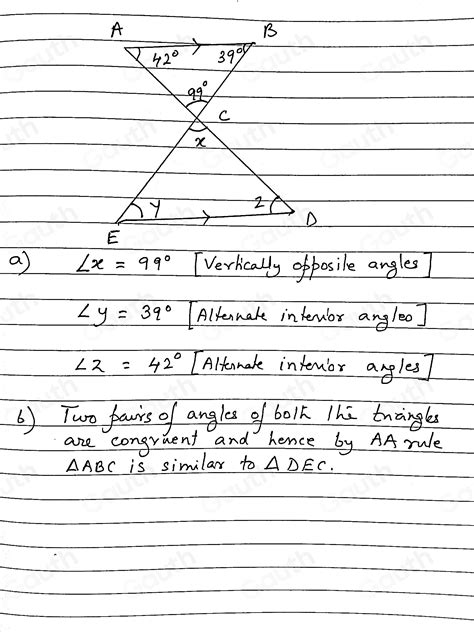 A B
42° 39°
99°
C
x
y z
E D
a) ∠x = 99° [Vertically opposite angles]
∠y = 39° [Alternate interior angles]
∠z = 42° [Alternate interior angles]
b) Two pairs of angles of both the triangles
are congruent and hence by AA rule
△ABC is similar to △DEC.